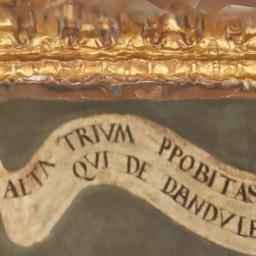 ALTA TRIVM PPOBITAS
QVI DE DANDVLE